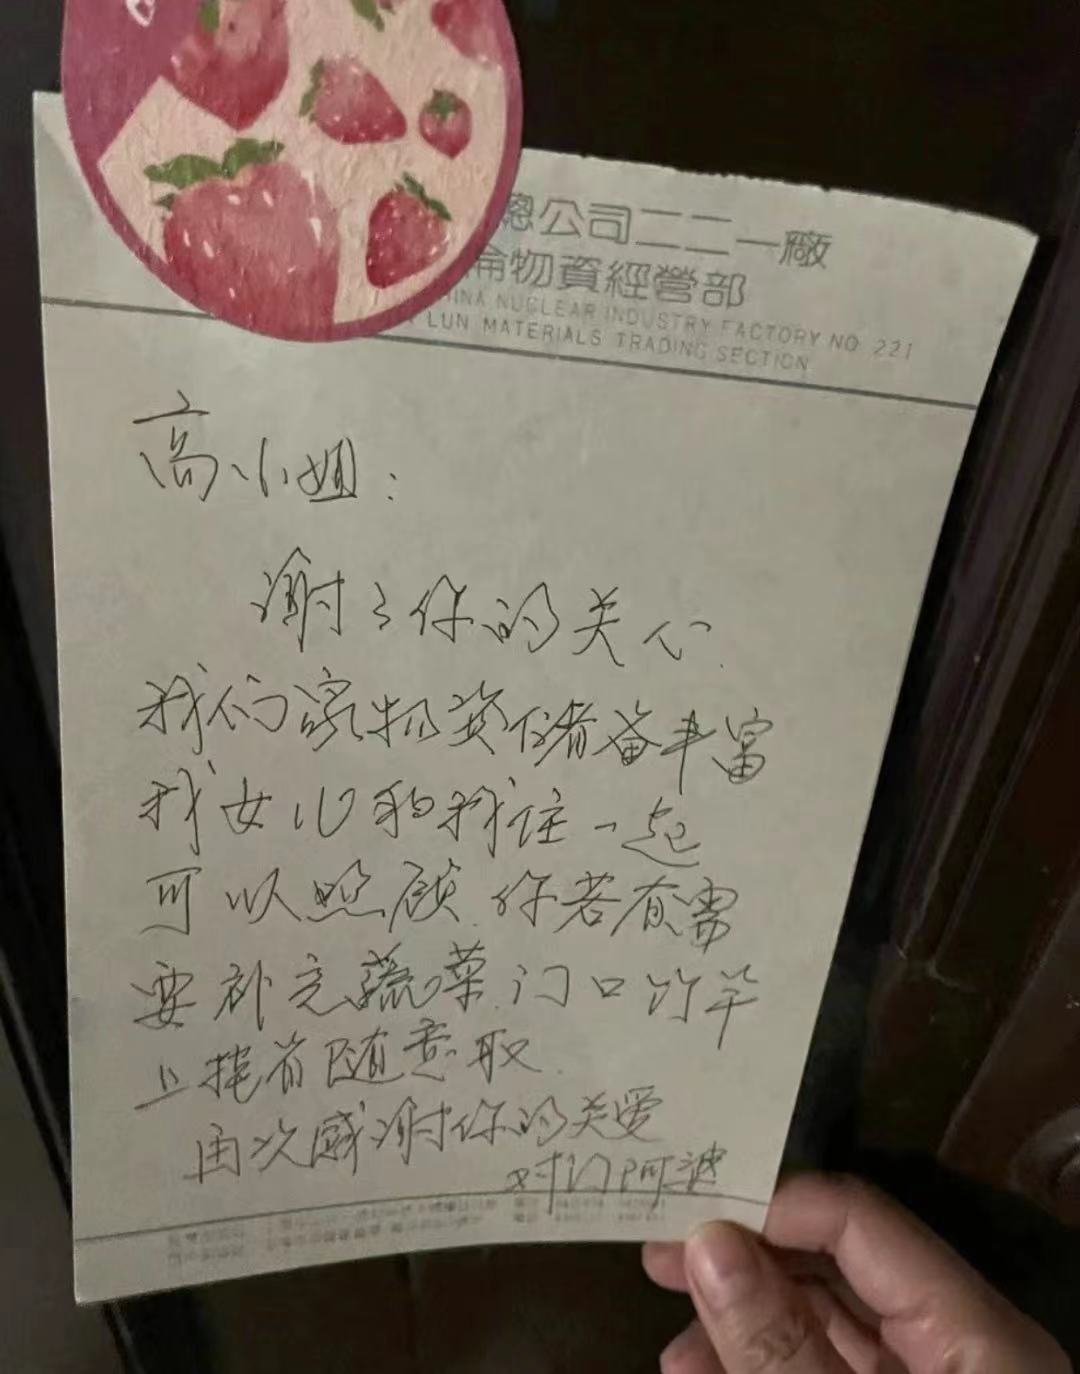 總公司二二一廠
物資經營部
HINA NUCLEAR INDUSTRY FACTORY NO. 221
LUN MATERIALS TRADING SECTION
高小姐：
谢了你的关心.
我们家物资储备丰富
我女儿和我住一起
可以照顾.你若有需
要补充蔬菜.门口竹竿
上挂着随意取.
再次感谢你的关爱
对门阿婆